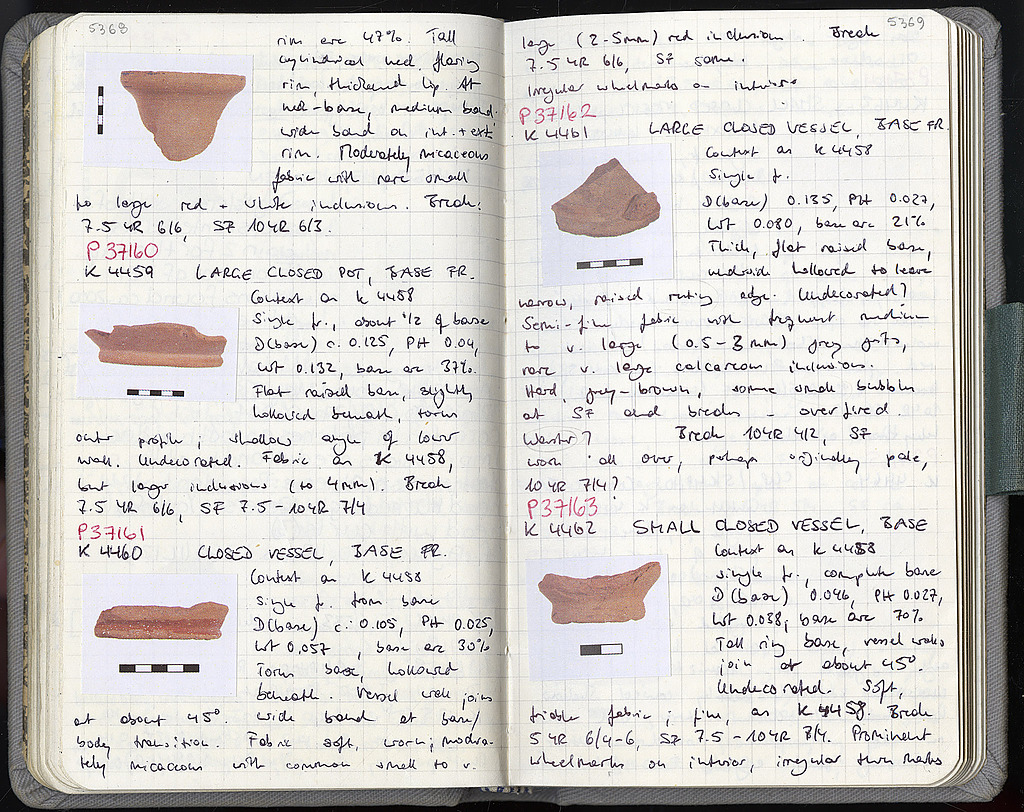 5368
rim arc 47%. Tall
cylindrical neck, flaring
rim, thickened lip. At
neck-base, medium band.
wide band on int. + ext
rim. Moderately micaceous
fabric with rare small
to large red + white inclusions. Break:
7.5 YR 6/6, SF 10YR 6/3.
P 37160
K 4459 LARGE CLOSED POT, BASE FR.
Context as K 4458
Single fr., about 1/2 of base
D(base) c. 0.125, PH 0.04,
Wt 0.132, base arc 37%.
Flat raised base, slightly
hollowed beneath, torus
outer profile; shallow angle of lower
wall. Undecorated. Fabric as K 4458,
but larger inclusions (to 4mm). Break
7.5 YR 6/6, SF 7.5-10YR 7/4
P37161
K 4460 CLOSED VESSEL, BASE FR.
Context as K 4458
Single fr. from base
D(base) c. 0.105, PH 0.025,
Wt 0.057, base arc 30%
Torus base, hollowed
beneath. Vessel wall joins
at about 45°. Wide band at base/
body transition. Fabric soft, worn; modera-
tely micaceous with common small to v.
5369
large (2-5mm) red inclusions. Break
7.5 YR 6/6, SF same.
Irregular wheelmarks on interior
P37162
K 4461 LARGE CLOSED VESSEL, BASE FR.
Context as K 4458
Single fr.
D(base) 0.135, PH 0.027,
Wt 0.080, base arc 21%
Thick, flat raised base,
underside hollowed to leave
narrow, raised resting edge. Undecorated?
Semi-fine fabric with frequent medium
to v. large (0.5-3mm) grey grits,
rare v. large calcareous inclusions.
Hard, grey-brown, some small bubbles
at SF and breaks - overfired.
Waster? Break 10YR 4/2, SF
worn all over, perhaps originally pale,
10YR 7/4?
P37163
K 4462 SMALL CLOSED VESSEL, BASE
Context as K 4458
single fr., complete base
D(base) 0.046, PH 0.027,
Wt 0.038, base arc 70%
Tall ring base, vessel walls
join at about 45°.
Undecorated. Soft,
friable fabric; fine, as K 4458. Break
5 YR 6/4-6, SF 7.5-10YR 7/4. Prominent
wheelmarks on interior, irregular turn marks